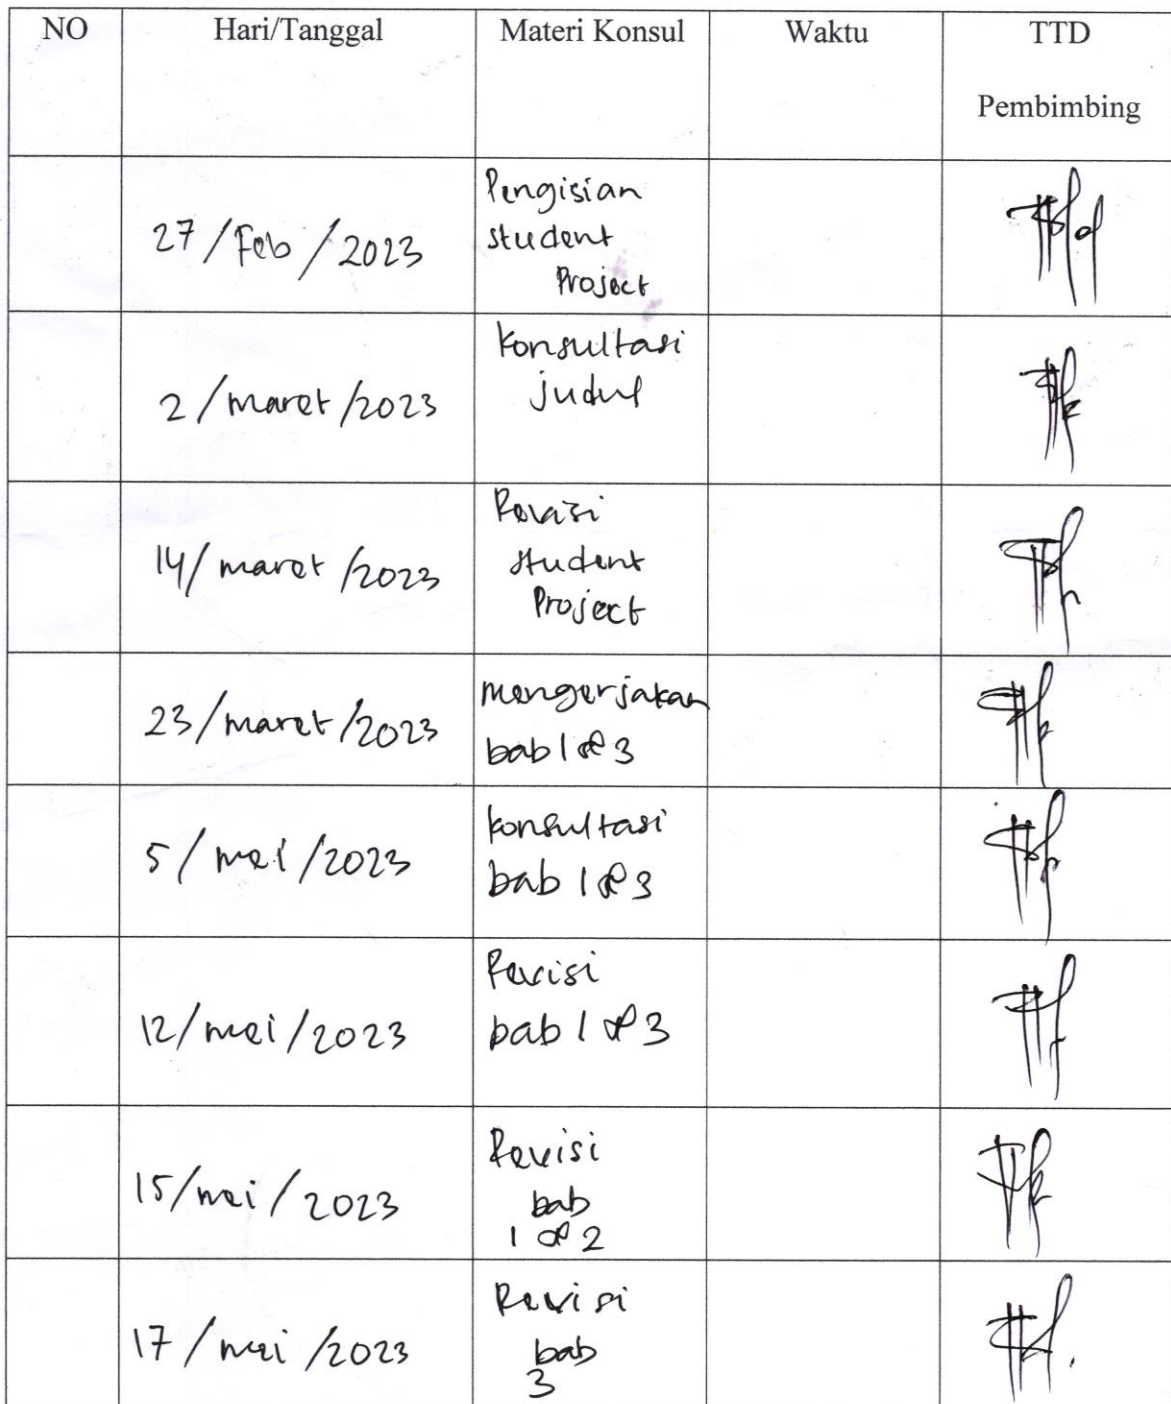 NO Hari/Tanggal Materi Konsul Waktu TTD
Pembimbing
27/Feb/2023
Pengisian
student
Project
2/maret/2023
Konsultasi
judul
14/maret/2023
Revisi
student
Project
23/maret/2023
mengerjakan
bab 1 & 3
5/mei/2023
konsultasi
bab 1 & 3
12/mei/2023
Revisi
bab 1 & 3
15/mei/2023
Revisi
bab
1 & 2
17/mei/2023
Revisi
bab
3